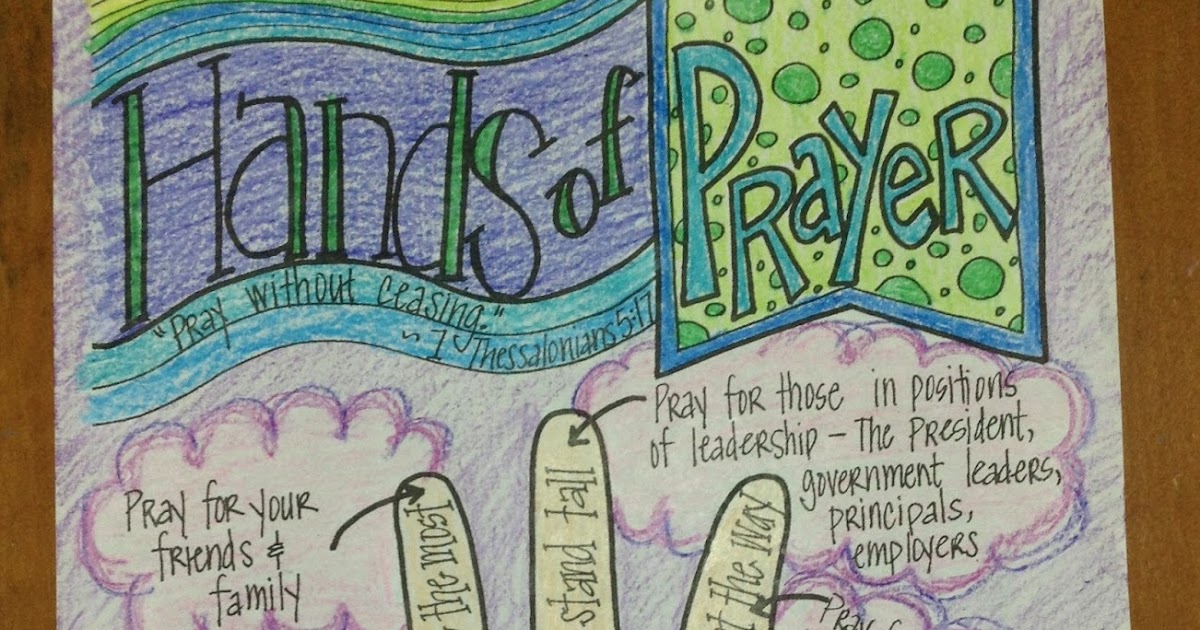 Hands of
PRAYER
"Pray without ceasing."
~ 1 Thessalonians 5:17
Pray for those in positions
of leadership – The President,
government leaders,
principals,
employers
Pray for your
friends &
family
the most
stand tall
the way
Pray